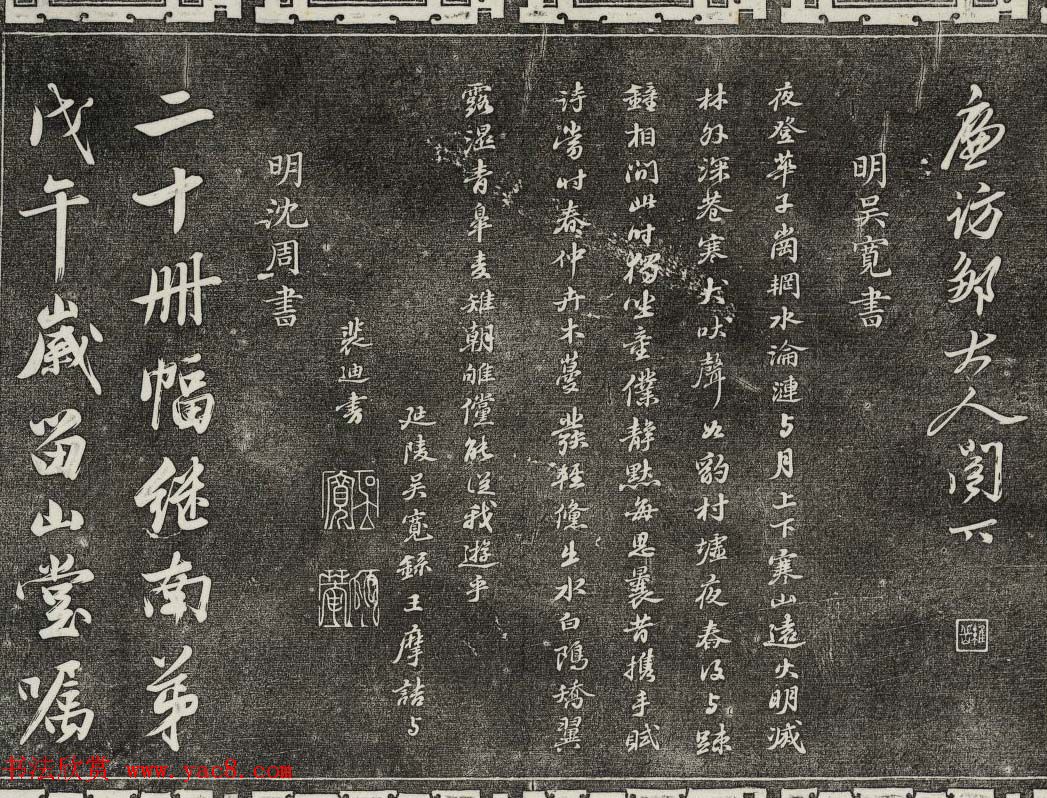 廉訪鄒大人閣下
明吳寬書
夜登華子崗輞水淪漣与月上下寒山遠火明滅
林外深巷寒犬吠聲如豹村墟夜舂復与疎
鐘相間此时獨坐童僕靜默每思曩昔攜手賦
詩當时春仲卉木蔓發輕儵出水白鷗矯翼
露濕青皐麦雉朝雊儻能從我遊乎
延陵吳寬錄王摩詰与
裴迪书
吳寬
明沈周書
二十冊幅继南弟
戊午歲留山堂嘱
书法欣赏 www.yac8.com